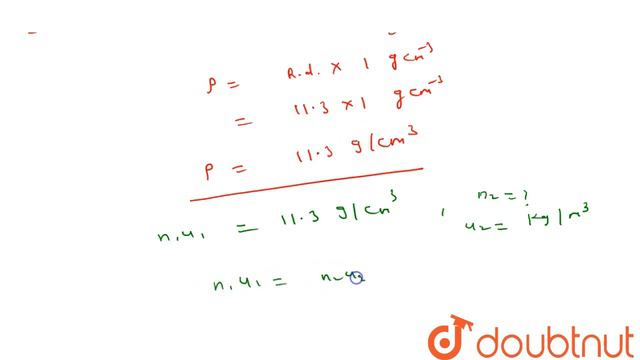 ρ = R.d. × 1 g cm⁻³
= 11.3 × 1 g cm⁻³
ρ = 11.3 g/cm³
n₁u₁ = 11.3 g/cm³ , n₂ = ?
u₂ = kg/m³
n₁u₁ = n₂u₂
doubtnut